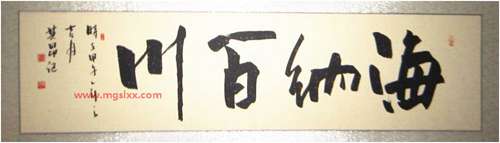 海纳百川
時在甲午
吉月
www.mgslxx.com